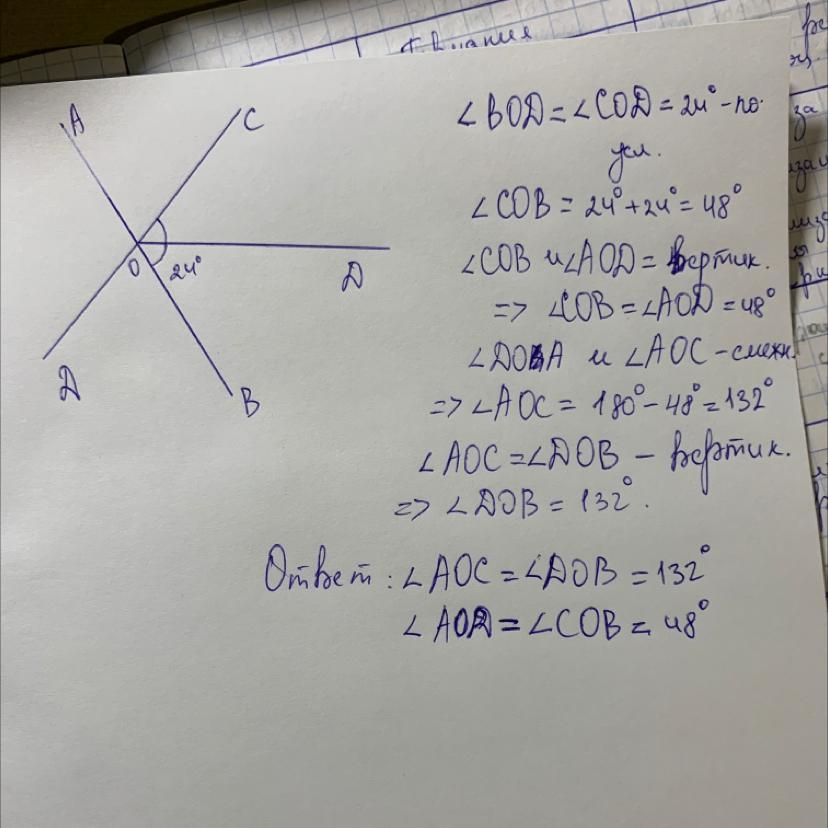 твиания
A
C
O
24°
D
D
B
∠BOD = ∠COD = 24° - по
усл.
∠COB = 24° + 24° = 48°
∠COB и ∠AOD = вертик.
=> ∠COB = ∠AOD = 48°
∠DOA и ∠AOC - смежн.
=> ∠AOC = 180° - 48° = 132°
∠AOC = ∠DOB - вертик.
=> ∠DOB = 132°.
Ответ: ∠AOC = ∠DOB = 132°
∠AOD = ∠COB = 48°
за